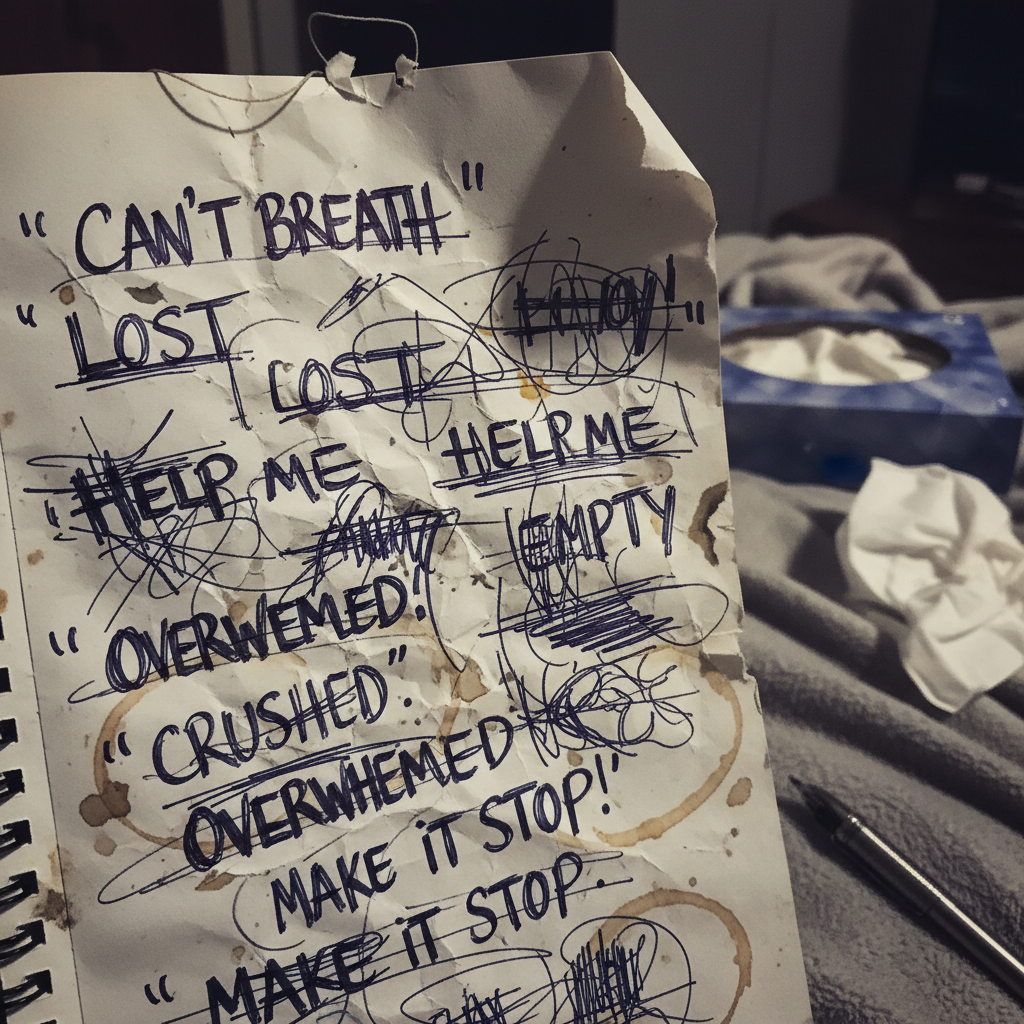 " CAN'T BREATH "
" LOST
LOST
HELP ME
HELP ME
EMPTY
" OVERWEMED!
" CRUSHED".
OVERWHEMED
MAKE iT STOP!"
" MAKE iT STOP.